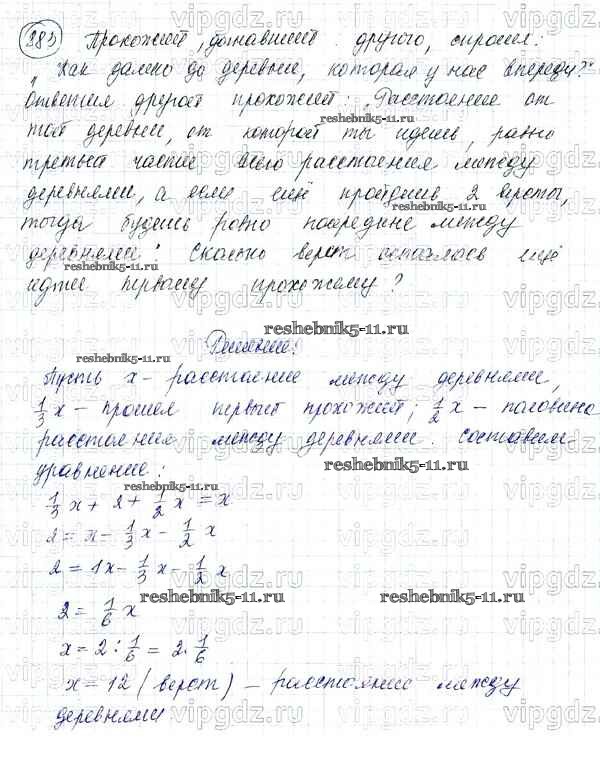 383 Прохожий, догнавший другого, спросил:
„Как далеко до деревни, которая у нас впереди?"
Ответил другой прохожий: „Расстояние от
той деревни, от которой ты идешь, равно
третьей части всего расстояния между
деревнями, а если ещё пройдешь 2 версты,
тогда будешь ровно посредине между
деревнями". Сколько верст осталось ещё
идти первому прохожему?
Решение:
Пусть x - расстояние между деревнями,
1/3 x - прошел первый прохожий; 1/2 x - половина
расстояния между деревнями. Составим
уравнение:
1/3 x + 2 + 1/2 x = x
2 = x - 1/3 x - 1/2 x
2 = 1x - 1/3 x - 1/2 x
2 = 1/6 x
x = 2 : 1/6 = 2 · 1/6
x = 12 (верст) - расстояние между
деревнями
reshebnik5-11.ru
reshebnik5-11.ru
reshebnik5-11.ru
reshebnik5-11.ru
reshebnik5-11.ru
reshebnik5-11.ru
reshebnik5-11.ru
reshebnik5-11.ru
vipgdz.ru